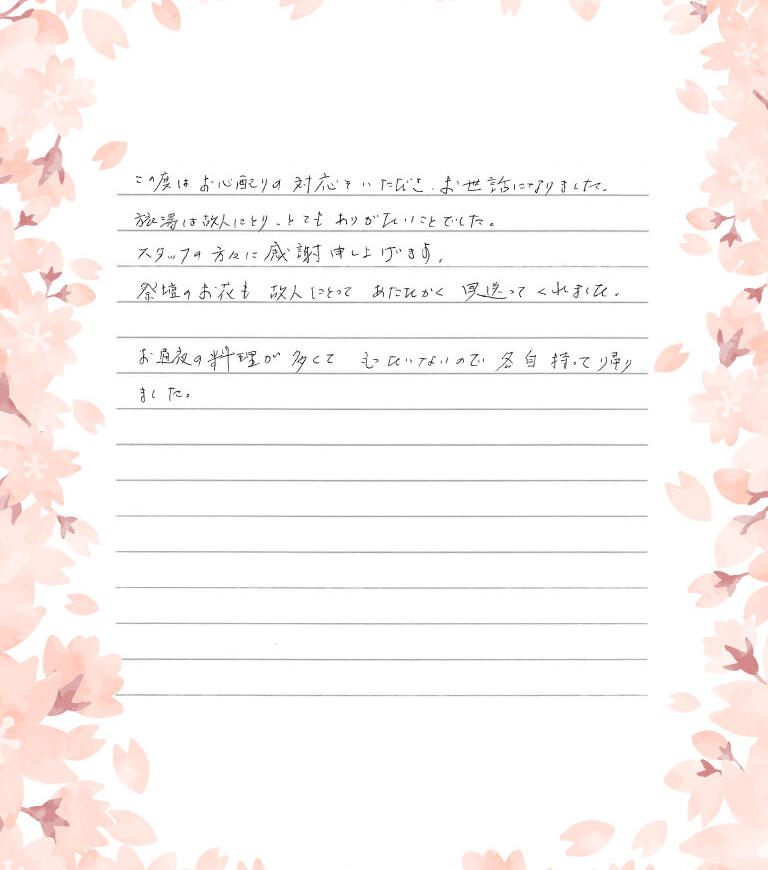 この度はお心配りの対応をいただき、お世話になりました。
旅湯は故人にとり、とてもありがたいことでした。
スタッフの方々に感謝申し上げます。
祭壇のお花も 故人にとって あたたかく 見送ってくれました。
お通夜の料理が多くて もったいないので 各自持って帰り
ました。